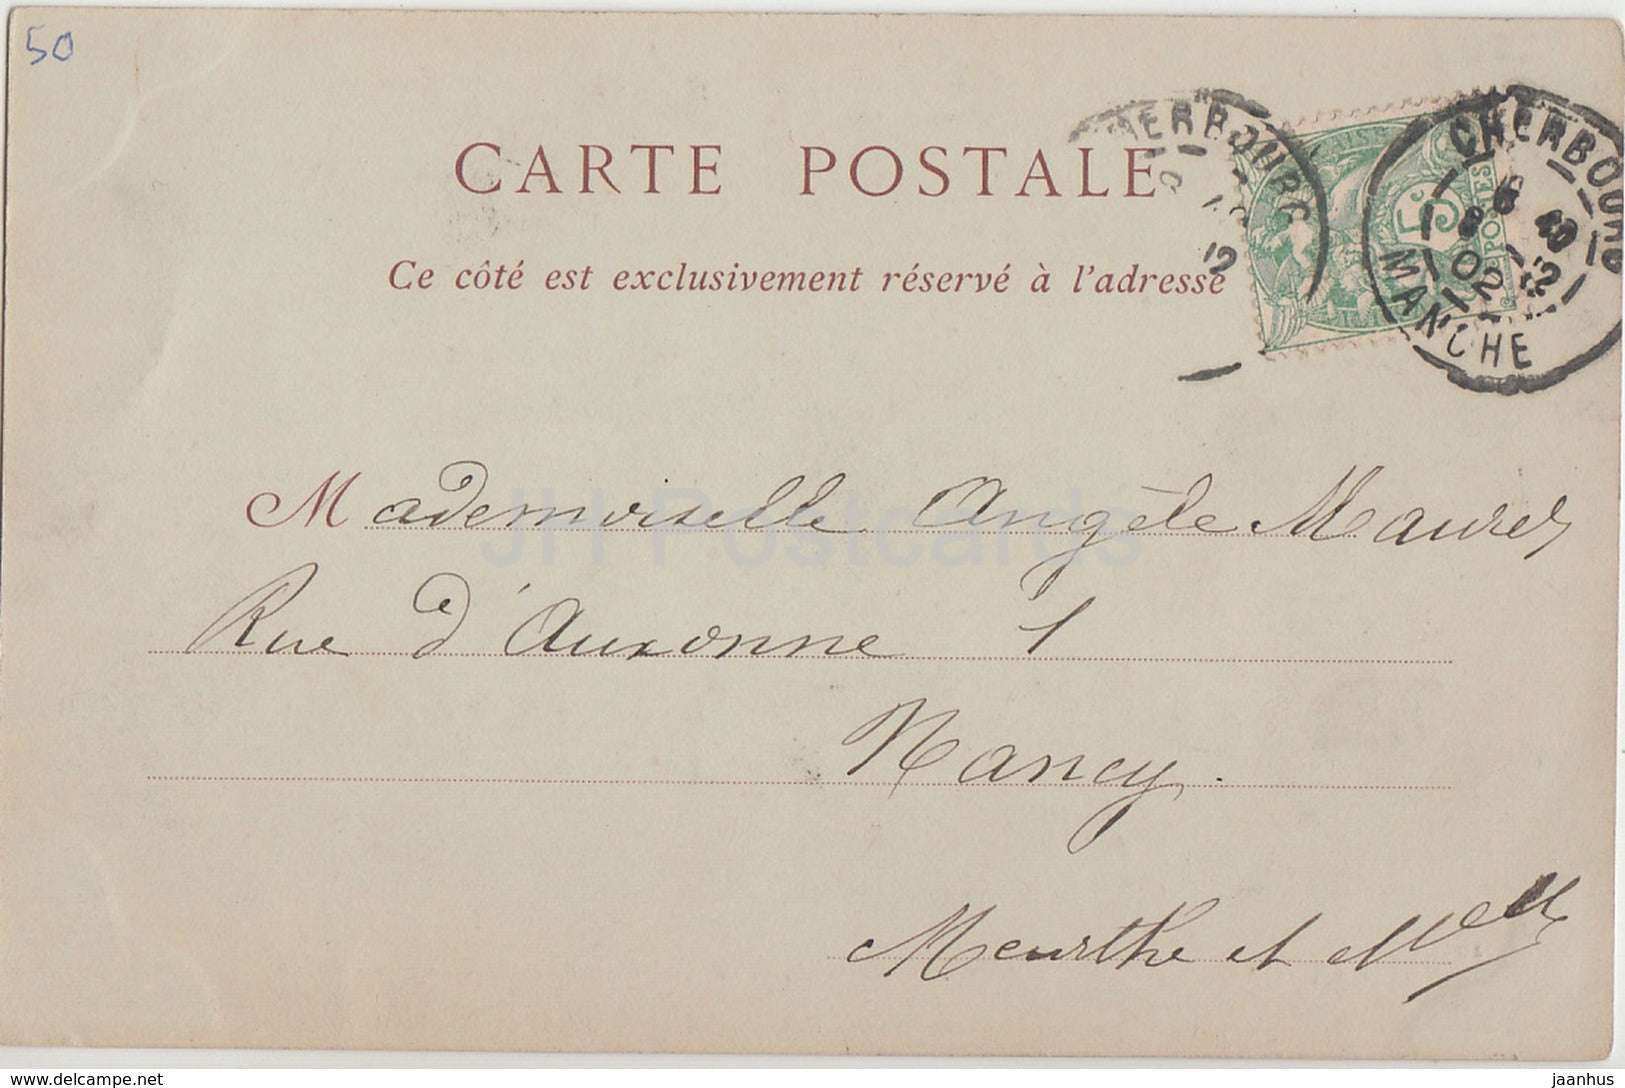 50
CARTE POSTALE
Ce côté est exclusivement réservé à l'adresse
CHERBOURG
MANCHE
02
5c
POSTES
Mademoiselle Angèle Maurel
Rue d'Auxonne 1
Nancy.
Meurthe et Melle
JH Postcards
jaanhus
delcampe.net